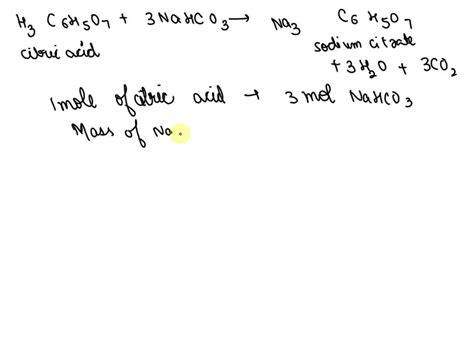 H₃ C₆H₅O₇ + 3NaHCO₃ → Na₃ C₆H₅O₇
citric acid sodium citrate
+ 3H₂O + 3CO₂
1 mole of citric acid → 3 mol NaHCO₃
Mass of Na